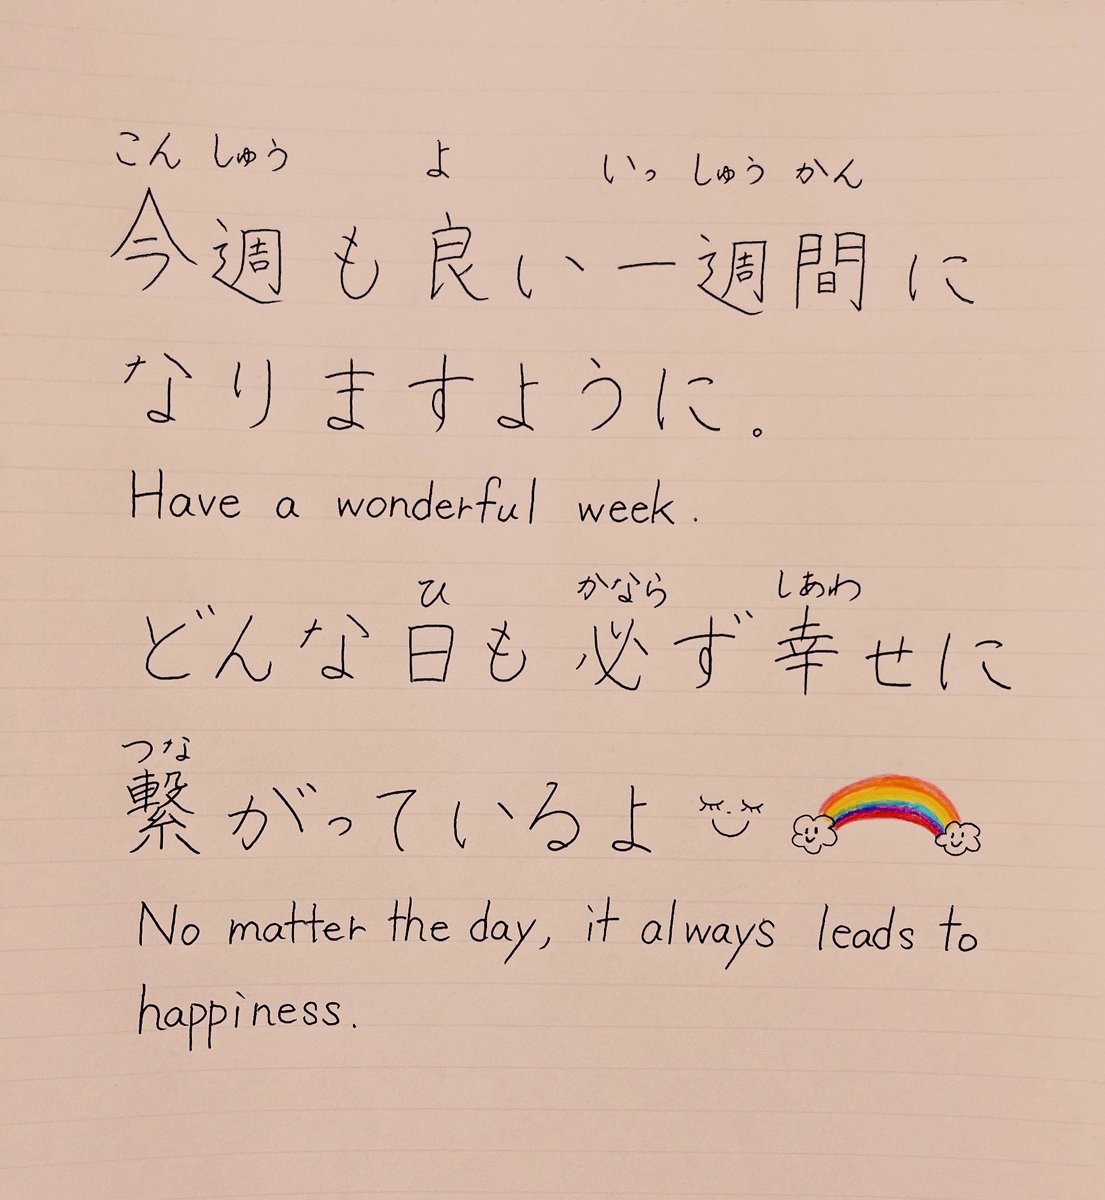 こん しゅう よ いっ しゅう かん
今週も良い一週間に
なりますように。
Have a wonderful week.
ひ かなら しあわ
どんな日も必ず幸せに
つな
繋がっているよ
No matter the day, it always leads to
happiness.